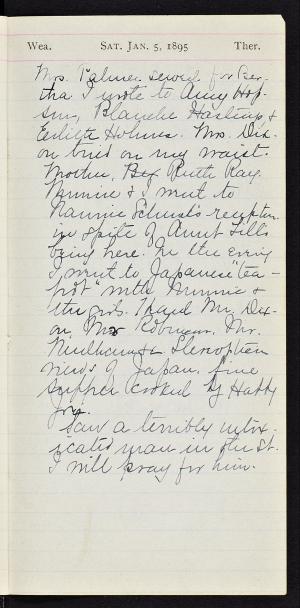 Wea. SAT. JAN. 5, 1895 Ther.
Mrs. Palmer sewed for Ber-
tha I wrote to Amy Hop-
Blanche Hastings &
Edith Holmes. Mrs. Dix-
on tried on my waist.
Mother, Bex Ruth Ray
Minnie & I went to
Nannie reception
in spite of Aunt Lill's
being here. In the evening
I went to Japanese "tea-
pot" with Minnie &
the girls. Heard Mr. Dix-
on, Mr Robinson, Mrs.
Stereoptican
views of Japan. fine
supper cooked by Hatty
Joy.
Saw a terribly intox-
icated man in the st.
I will pray for him.